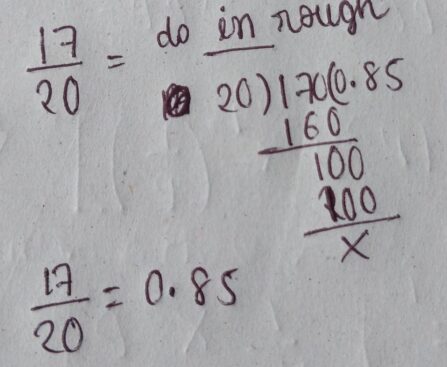 17/20 = do in rough
20)170(0.85
160
100
100
x
17/20 = 0.85